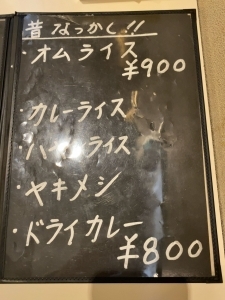 昔なっかし!!
・オムライス
¥900
・カレーライス
・ハイシライス
・ヤキメシ
・ドライカレー
¥800